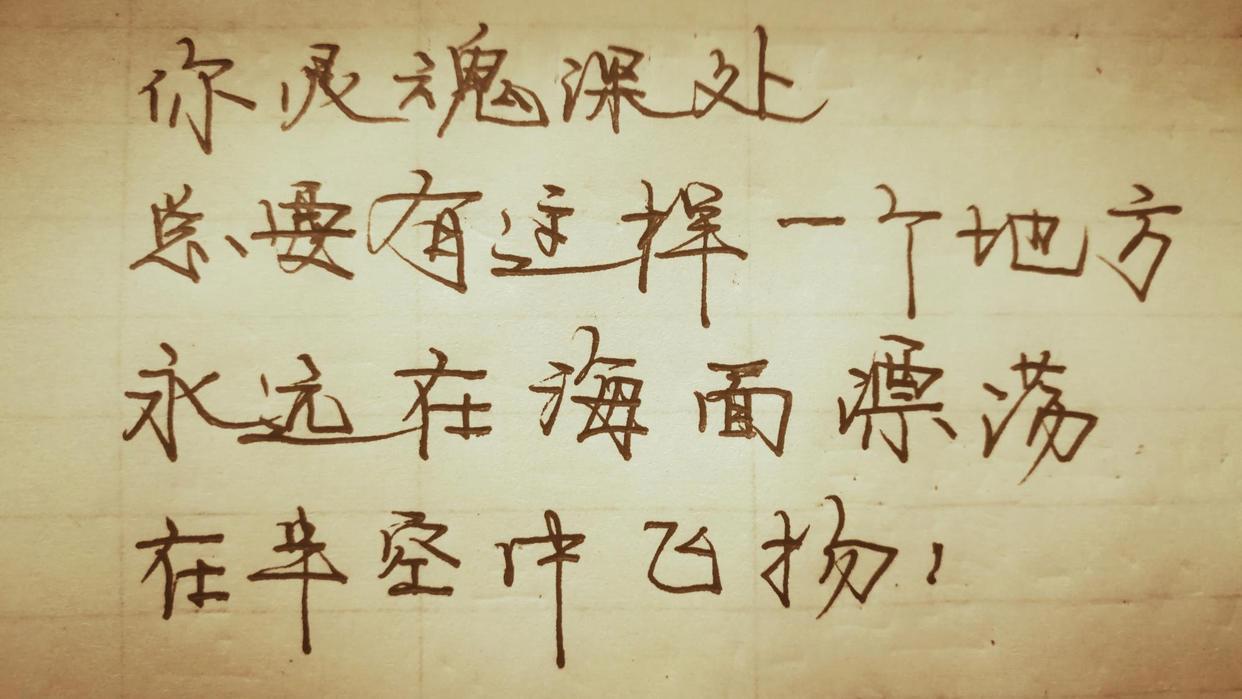 你灵魂深处
总要有这样一个地方
永远在海面漂荡
在半空中飞扬！